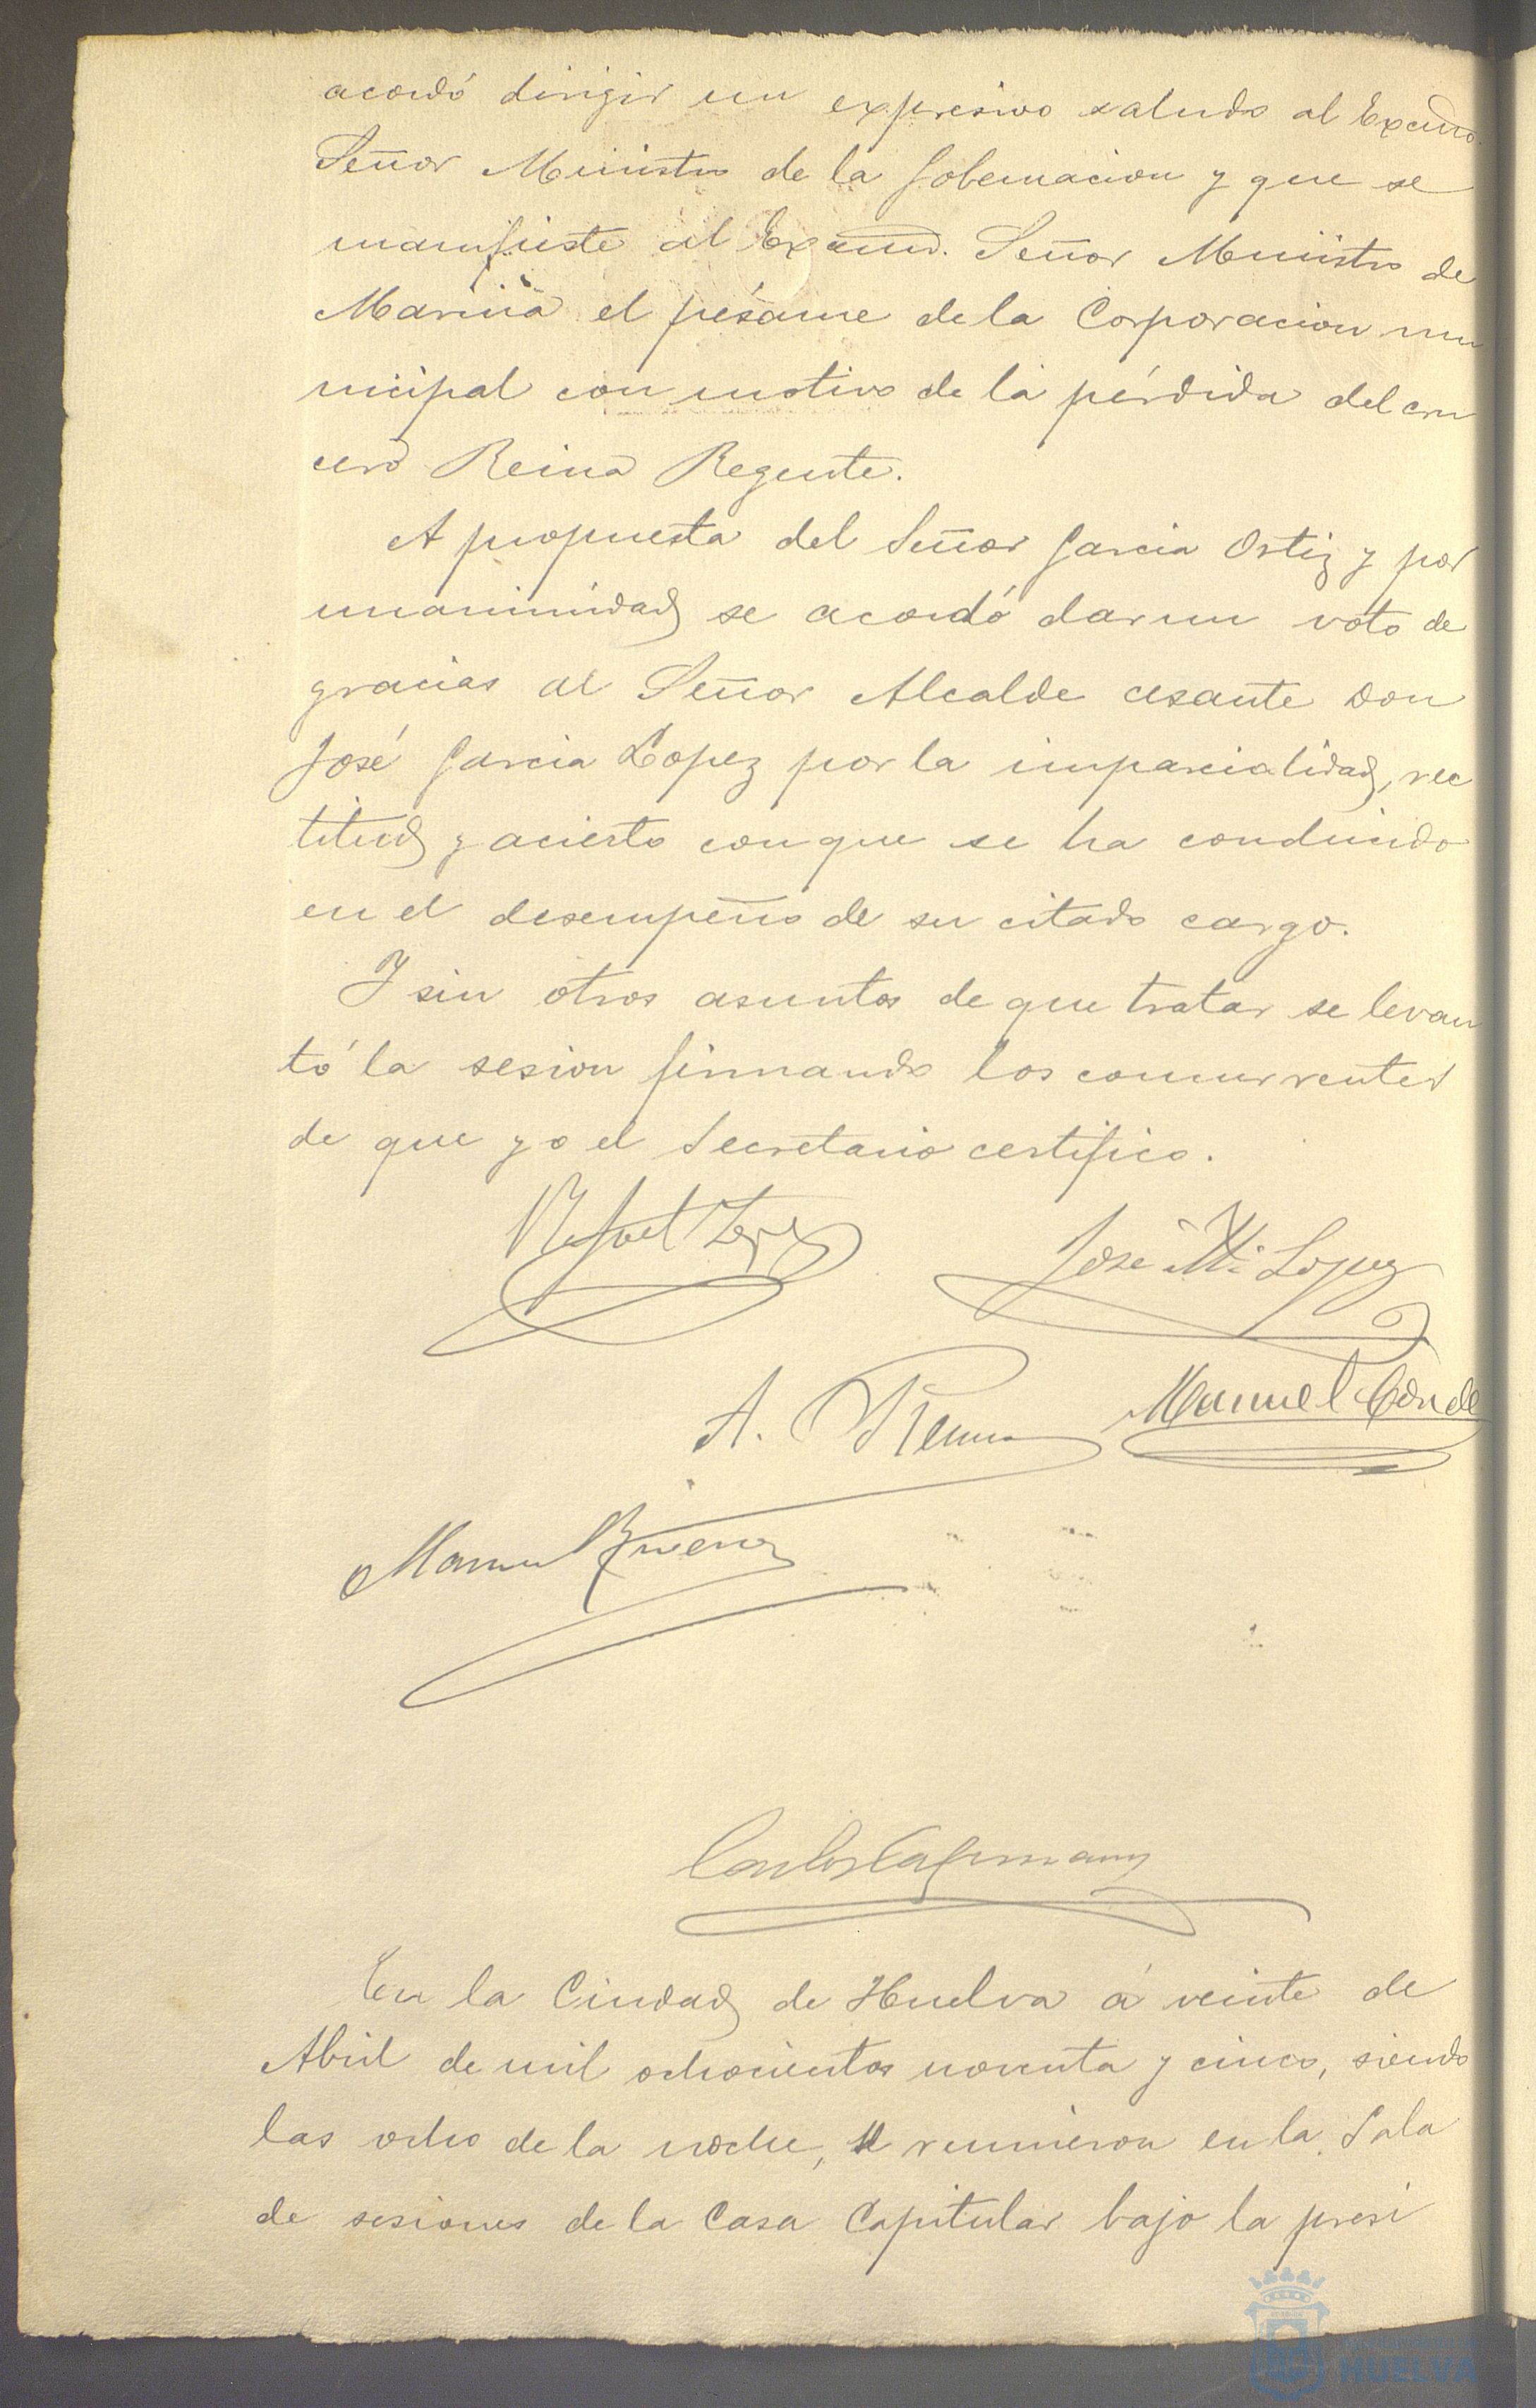 acordó dirigir un expresivo saludo al Excmo.
Señor Ministro de la Gobernacion y que se
manifieste al Excmo. Señor Ministro de
Marina el pésame de la Corporacion mu
nicipal con motivo de la pérdida del cru
cero Reina Regente.
A propuesta del Señor Garcia Ortiz y por
unanimidad se acordó dar un voto de
gracias al Señor Alcalde cesante Don
José Garcia Lopez por la imparcialidad, rec
titud y acierto con que se ha conducido
en el desempeño de su citado cargo.
Y sin otros asuntos de que tratar se levan
tó la sesion firmando los concurrentes
de que yo el Secretario certifico.
Rafael
José Mª Lopez
A.
Manuel Conde
Manuel
Carlos
En la Ciudad de Huelva á veinte de
Abril de mil ochocientos noventa y cinco, siendo
las ocho de la noche, se reunieron en la Sala
de sesiones de la Casa Capitular bajo la presi
HUELVA